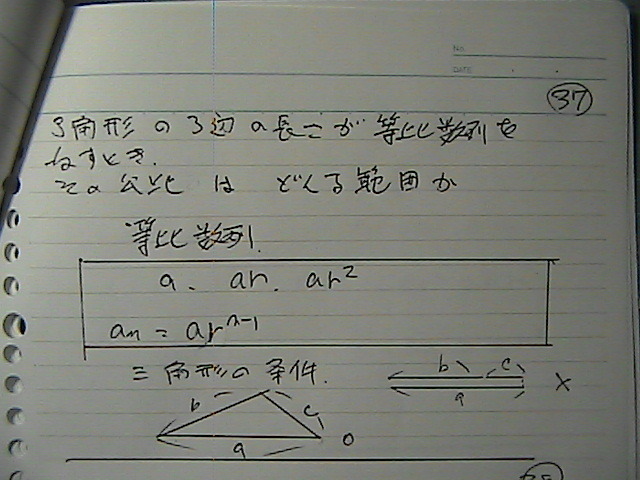 No.
DATE
㊲
3角形の3辺の長さが等比数列を
なすとき.
その公比は どんな範囲か
等比数列.
a. ar. ar²
an = ar^n-1
三角形の条件.
b c
a ×
b c
a ○